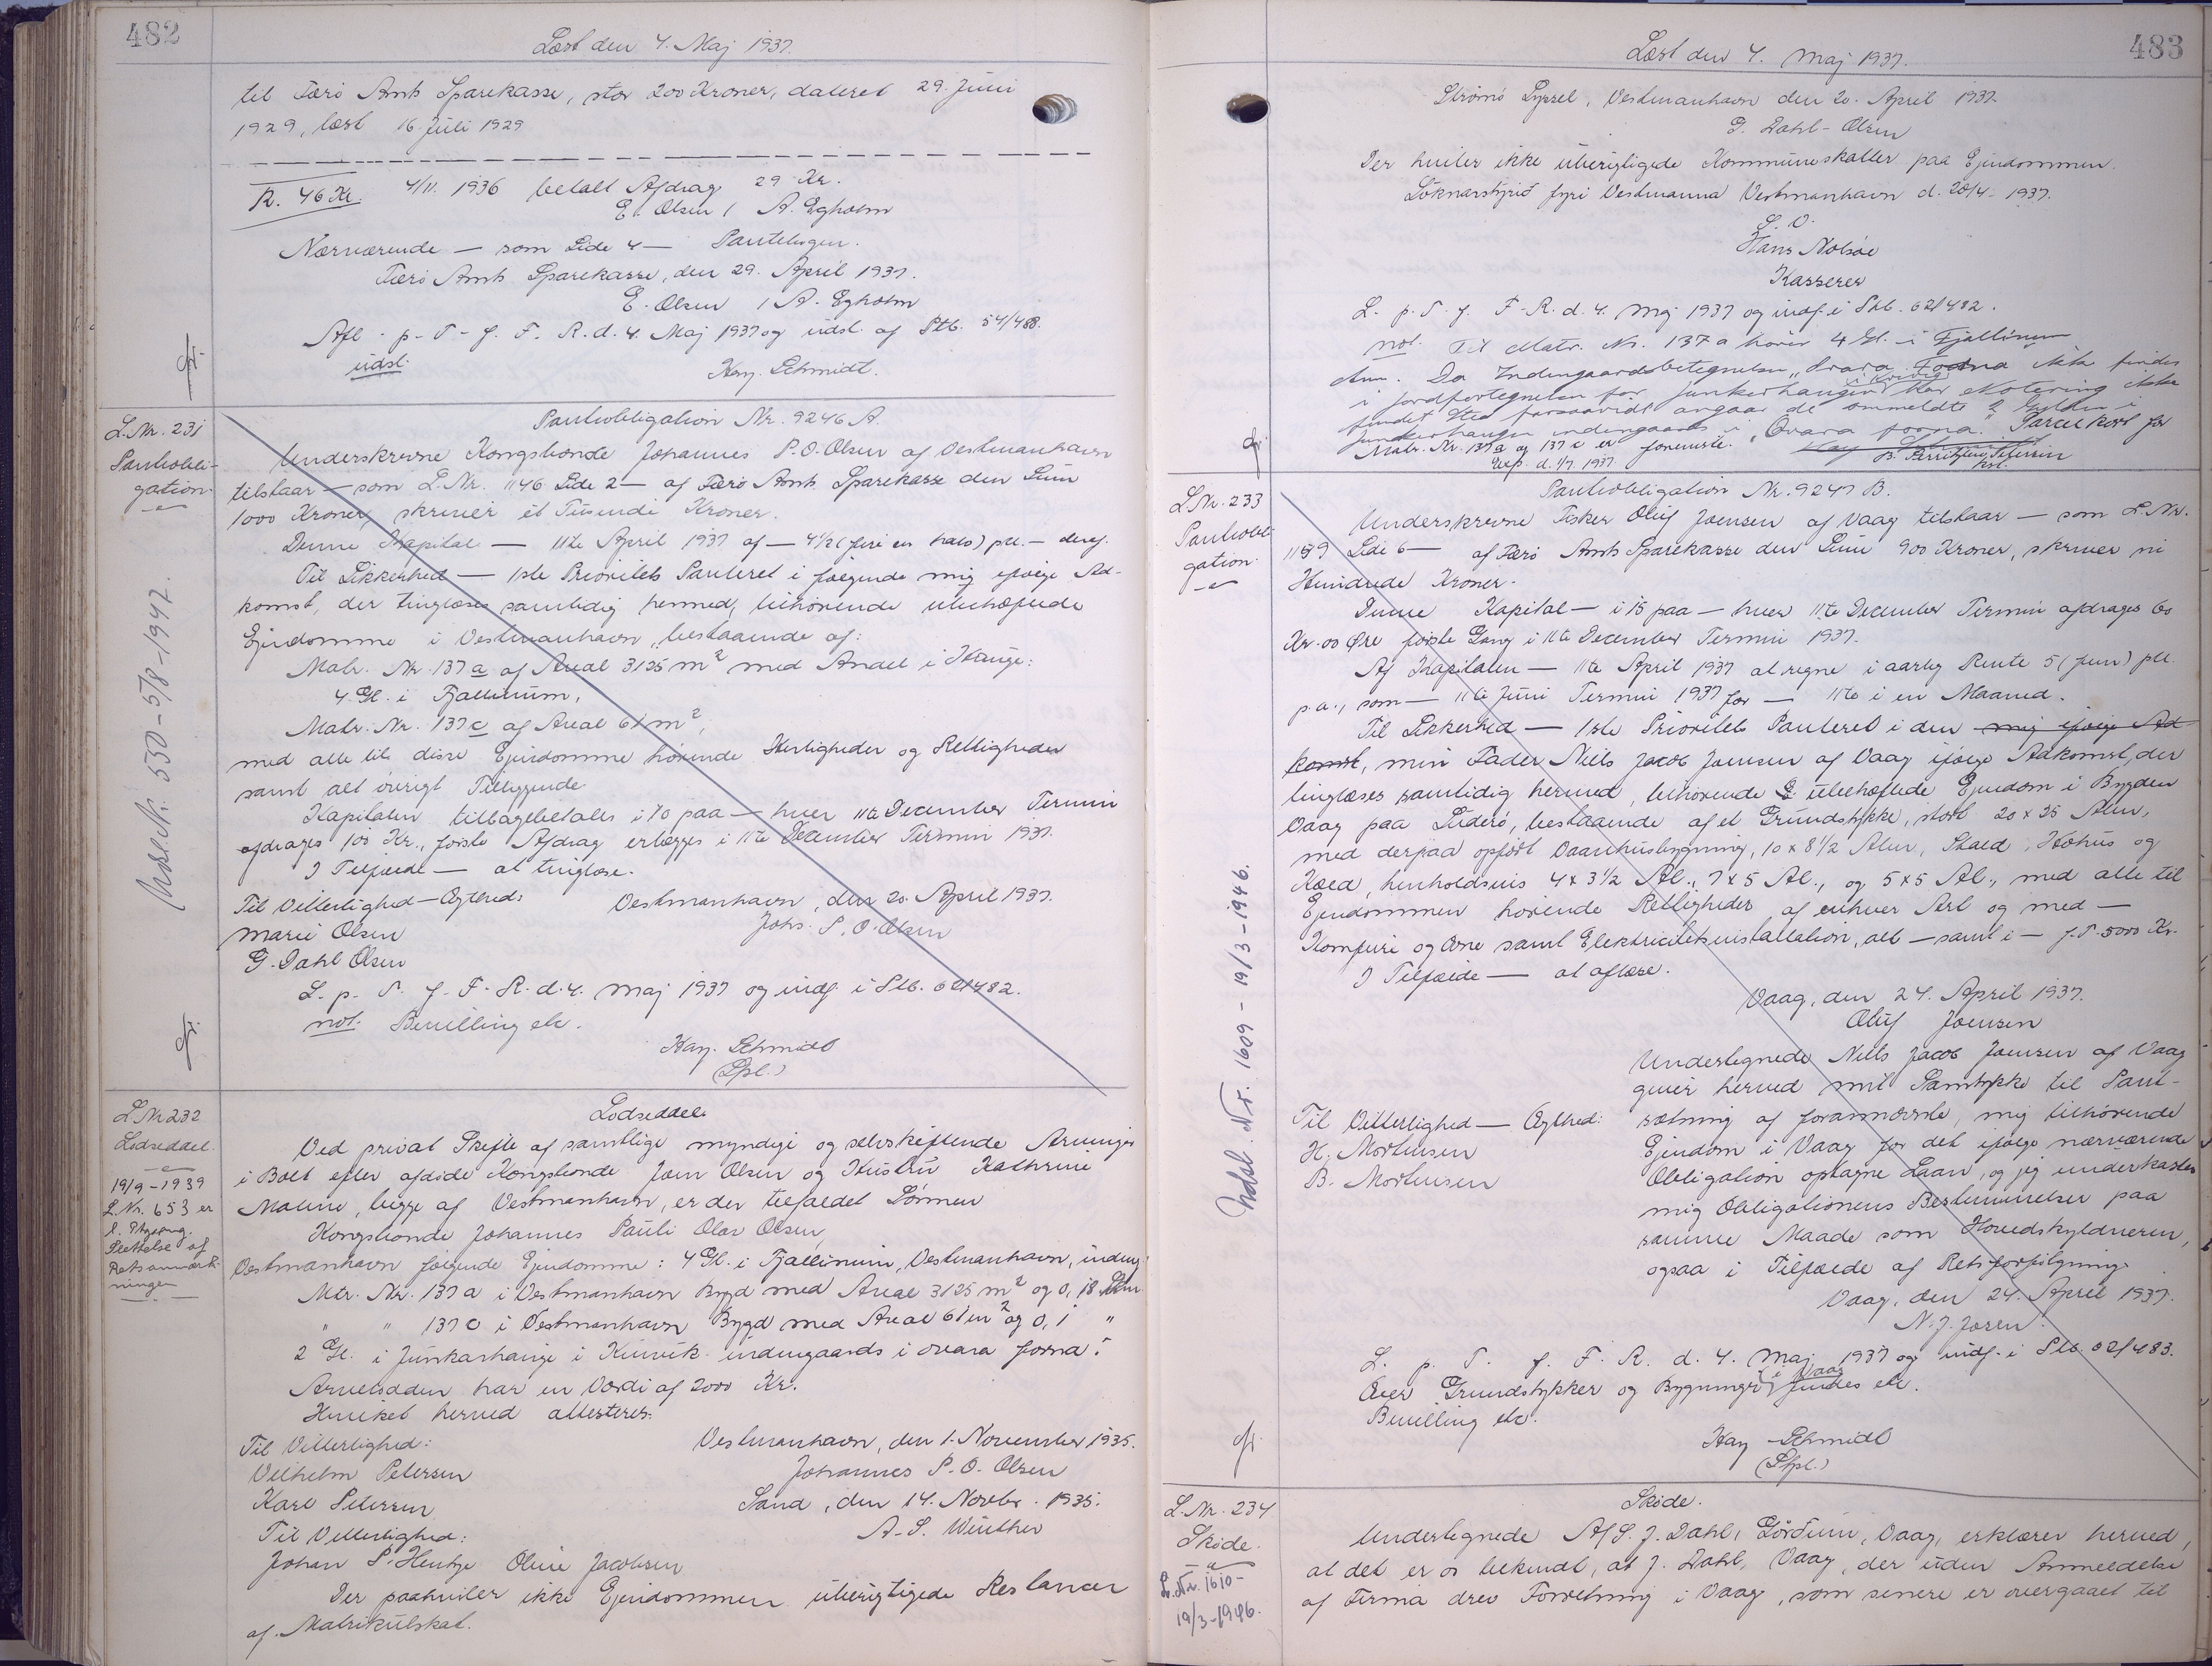 482
Læst den 4. Maj 1937.
til Færø Amts Sparekasse, stor 200 Kroner, dateret 29. Juni
1929, læst 16. Juli 1929
R. 46 Kr. 4/11. 1936 betalt Afdrag 29 Kr.
E. Olsen / A. Egholm
Nærværende — som Side 4 — Pantebogen.
Færø Amts Sparekasse, den 29. April 1937.
E. Olsen / A. Egholm
Afl. p. T. f. F. R. d. 4. Maj 1937 og udsl. af Ptb. 54/488.
udsl. Kay. Schmidt.
L. Nr. 231
Pantobli-
gation.
Udsl. Nr. 550 - 5/8 - 1947.
Pantobligation Nr. 9246 A.
Underskrevne Kongsbonde Johannes P. O. Olsen af Vestmanhavn
tilstaar — som L. Nr. 1146 Side 2 — af Færø Amts Sparekasse den Sum
1000 Kroner, skriver et Tusinde Kroner.
Denne Kapital — 11te April 1937 af — 4½ (fire en halv) pCt. —
Til Sikkerhed — 1ste Prioritets Panteret i følgende mig ifølge Ad-
komst, der tinglæses samtidig hermed, tilhørende ubehæftede
Ejendomme i Vestmanhavn, bestaaende af:
Matr. Nr. 137 a af Areal 3125 m² med Andel i Hauge:
4 Gl. i Fjallinum,
Matr. Nr. 137 c af Areal 61 m²,
med alle til disse Ejendomme hørende Herligheder og Rettigheder
samt alt øvrigt Tilliggende
Kapitalen tilbagebetales i 10 paa — hver 11te December Termin
afdrages 100 Kr., første Afdrag erlægges i 11te December Termin 1937.
I Tilfælde — at tinglæse.
Til Vitterlighed — Ægthed: Vestmanhavn, den 20. April 1937.
Marie Olsen Johs. P. O. Olsen
G. Dahl Olsen
L. p. T. f. F. R. d. 4. Maj 1937 og indf. i Ptb. 62/482.
not. Bevilling etc.
Kay. Schmidt
(Spl.)
L. Nr. 232
Lodseddel.
19/9 - 1939
L. Nr. 653 er
Slettelse af
Retsanmærk-
ningen
Lodseddel
Ved privat Skifte af samtlige myndige og selvskiftende Arvinger
i Boet efter afdøde Kongsbonde Joen Olsen og Hustru Kathrine
Maline, begge af Vestmanhavn, er der tilfaldet Sønnen
Kongsbonde Johannes Pauli Olav Olsen,
Vestmanhavn følgende Ejendomme: 4 Gl. i Fjallinum, Vestmanhavn, indeng.
Mtr. Nr. 137 a i Vestmanhavn Bygd med Areal 3125 m² og 0, 18
" " 137 c i Vestmanhavn Bygd med Areal 61 m² og 0, 1 "
2 Gl. i Junkarhauge i Kvivik indengaards i ovara forna.
Arvelodden har en Værdi af 2000 Kr.
Hvilket herved attesteres.
Til Vitterlighed: Vestmanhavn, den 1. November 1935.
Vilhelm Petersen Johannes P. O. Olsen
Karl Petersen Sand, den 14. Novbr. 1935.
Til Vitterlighed: A. S. Winther
Johan P. Hentze Oline Jacobsen
Der paahviler ikke Ejendommen uberigtigede Restancer
af Matrikulskat.
483
Læst den 4. Maj 1937.
Strømø Syssel, Vestmanhavn den 20. April 1937.
G. Dahl-Olsen
Der hviler ikke uberigtigede Kommuneskatter paa Ejendommen.
Sóknarstýrið fyri Vestmanna Vestmanhavn d. 20/4 - 1937.
Hans Nolsøe
Kasserer
L. p. T. f. F. R. d. 4. Maj 1937 og indf. i Ptb. 62/482.
not. Til Matr. Nr. 137 a hører 4 Gl. i Fjallinum
Anm. Da Indengaardsbetegnelsen "Ovara Forna" ikke findes
i Jordfortegnelsen for Junkerhaugen i Kvivig kan Notering ikke
findet Sted forsaavidt angaar de ommeldte 2 Gylden i
Junkerhaugen indengaards i "Ovara forna". Parcelkort for
Matr. Nr. 137 a og 137 c er foreviste.
Exp. d. 1/7. 1937.
L. Nr. 233
Pantobli-
gation.
Udsl. Nr. 1609 - 19/3 - 1946.
Pantobligation Nr. 9247 B.
Underskrevne Fisker Oluf Joensen af Vaag tilstaar — som L. Nr.
1189 Side 6 — af Færø Amts Sparekasse den Sum 900 Kroner, skriver ni
Hundrede Kroner.
Denne Kapital — i 15 paa — hver 11te December Termin afdrages 60
Kr. 00 Øre første Gang i 11te December Termin 1937.
Af Kapitalen — 11te April 1937 at regne i aarlig Rente 5 (fem) pCt.
p. a., som — 11te Juni Termin 1937 for — 11te i en Maaned.
Til Sikkerhed — 1ste Prioritets Panteret i den mig ifølge Ad
komst, min Fader Niels Jacob Joensen af Vaag ifølge Adkomst, der
tinglæses samtidig hermed, tilhørende ubehæftede Ejendom i Bygden
Vaag paa Suderø, bestaaende af et Grundstykke, stort 20 x 25 Alen,
med derpaa opført Vaanhusbygning, 10 x 8½ Alen, Stald, Høhus og
Kæld, henholdsvis 4 x 3½ Al., 7 x 5 Al., og 5 x 5 Al., med alle til
Ejendommen hørende Rettigheder af enhver Art og med —
Komfure og Ovne samt Elektricitetsinstallation, alt — samt i — f. T. 5000 Kr.
I Tilfælde — at aflæse.
Vaag, den 24. April 1937.
Oluf Joensen
Undertegnede Niels Jacob Joensen af Vaag
giver herved mit Samtykke til Pant-
Til Vitterlighed — Ægthed: sætning af forannævnte, mig tilhørende
H. Mortensen Ejendom i Vaag for det ifølge nærværende
B. Mortensen Obligation optagne Laan, og jeg underkaster
mig Obligationens Bestemmelser paa
samme Maade som Hovedskyldneren,
ogsaa i Tilfælde af Retsforfølgning.
Vaag, den 24. April 1937.
N. J. Joensen.
L. p. T. f. F. R. d. 4. Maj 1937 og indf. i Ptb. 62/483.
Over Grundstykker og Bygninger i Vaag findes etc.
Bevilling etc.
Kay Schmidt
(Spl.)
L. Nr. 234
Skøde.
L. Nr. 1610 -
19/3 - 1946.
Skøde.
Undertegnede A/S. J. Dahl, Vaag, erklærer herved,
at det er os bekendt, at J. Dahl, Vaag, der uden Anmeldelse
af Firma drev Forretning i Vaag, som senere er overgaaet til